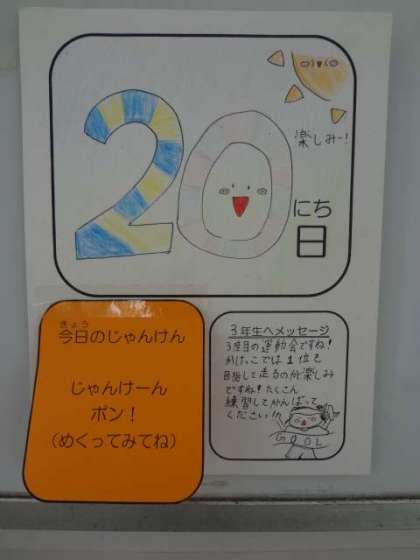 楽しみー!
20
にち
日
きょう
今日のじゃんけん
じゃんけーん
ポン!
(めくってみてね)
3年生へメッセージ
3度目の運動会ですね!
かけっこでは1位を
目指して走るのが楽しみ
ですね!たくさん
練習してがんばって
ください!!
GOOL